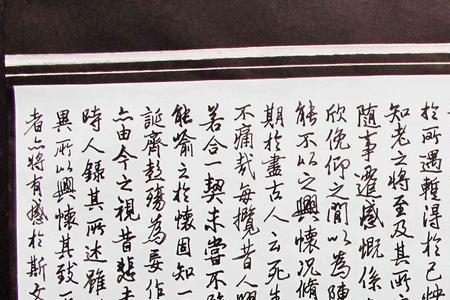 於所遇輙得於己快
知老之將至及其所
隨事遷感慨係
欣俛仰之閒以為陳
能不以之興懷況脩
期於盡古人云死生
不痛哉每攬昔人興
若合一契未嘗不臨
能喻之於懷固知一
誕齊彭殤為妄作
亦由今之視昔悲夫
時人錄其所述雖
異所以興懷其致一
者亦將有感於斯文